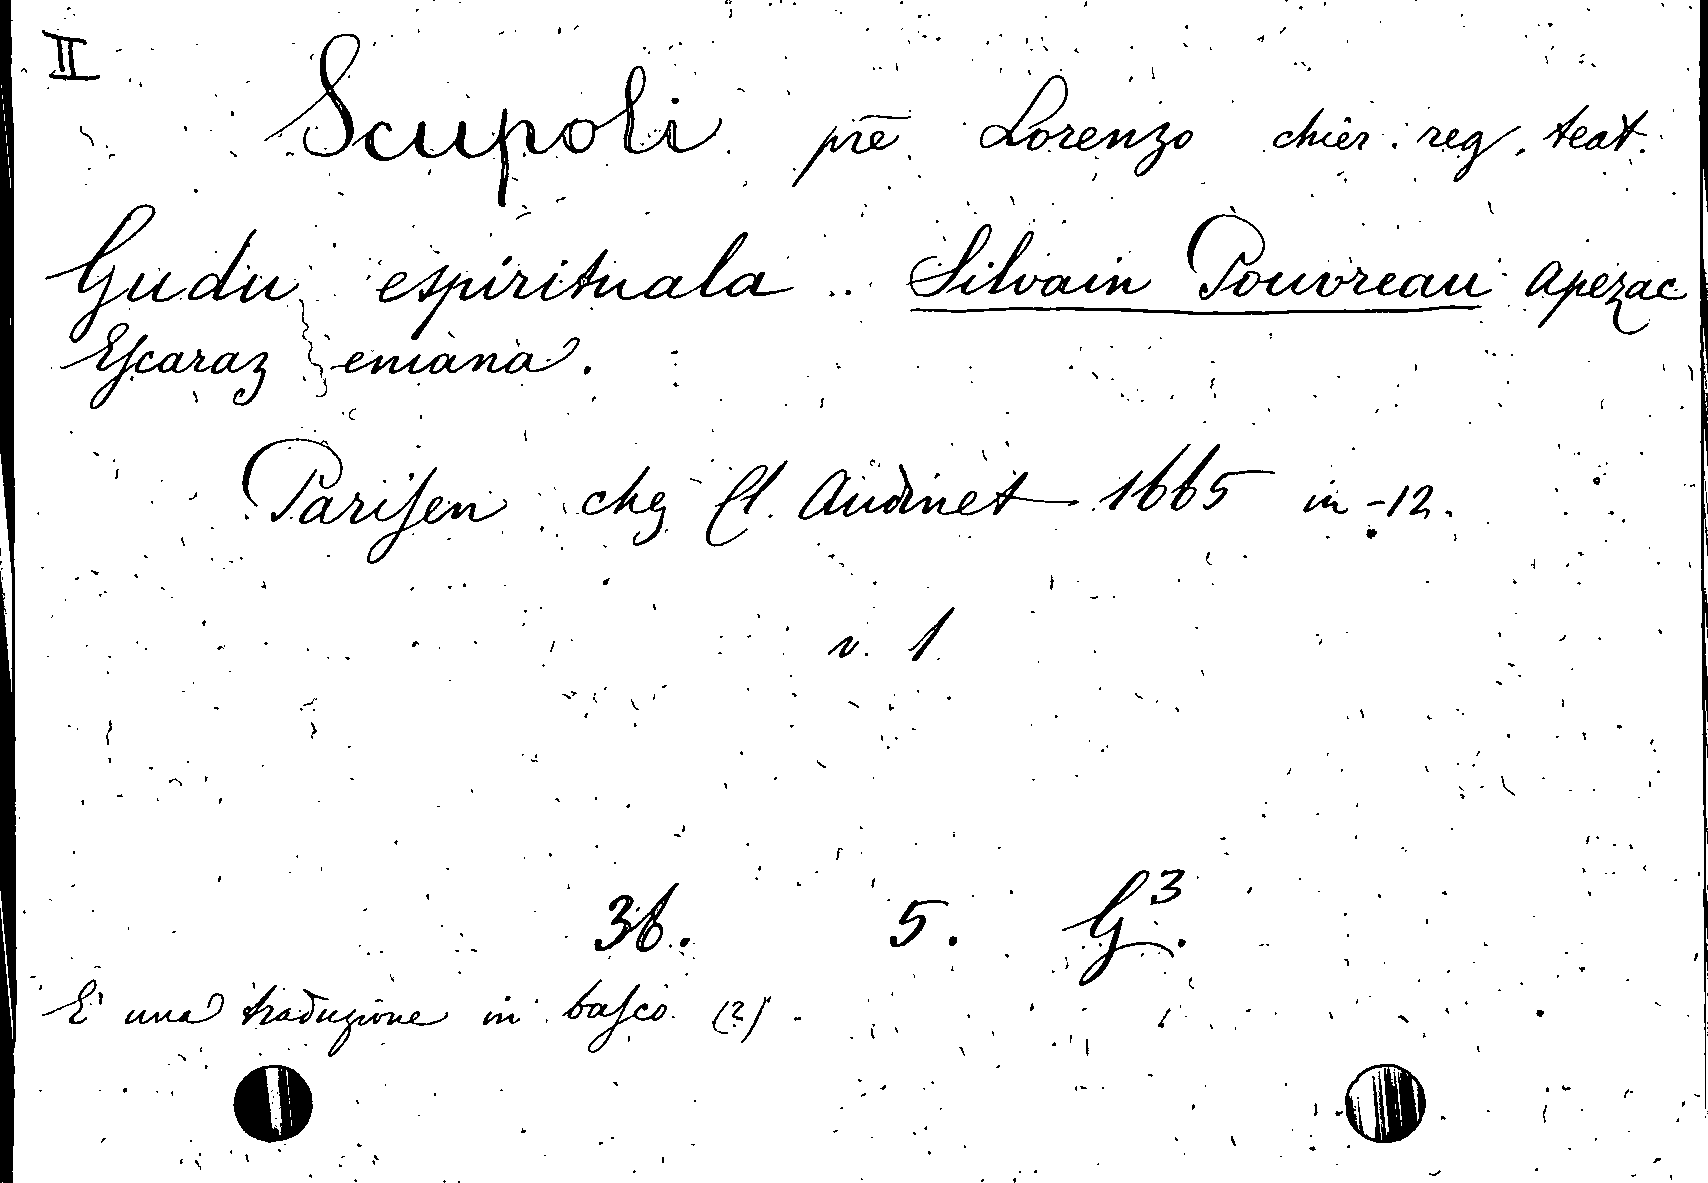 II
Scupoli prē Lorenzo chier. reg. teat.
Gudu espirituala .. Silvain Pouvreau apezac
Escaraz emana.
Parisen chez Cl. Audinet 1665 in-12.
v. 1
36. 5. G³.
E' una traduzione in basco (?)